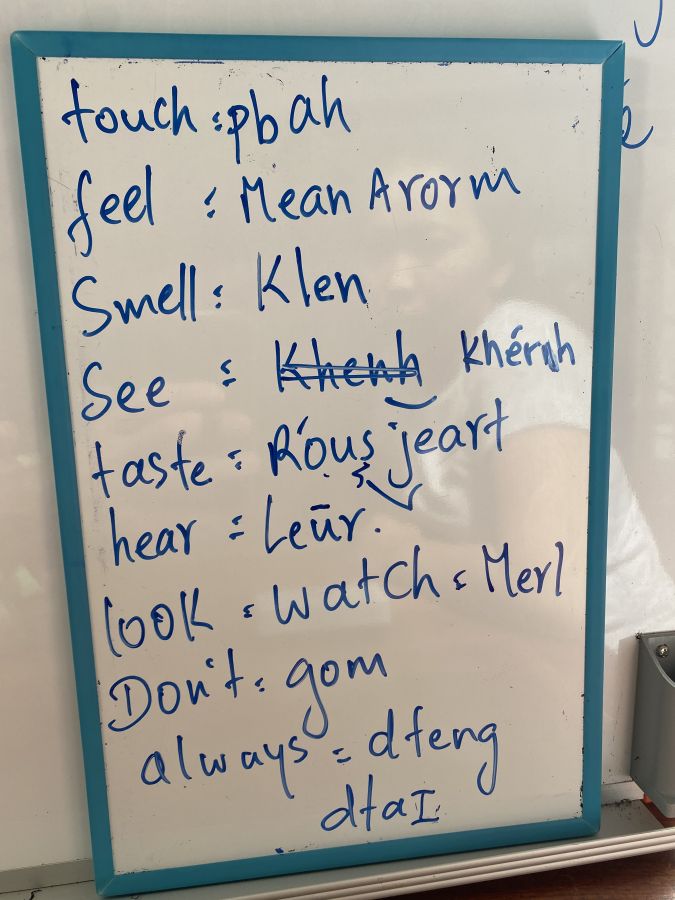 touch : pbah
feel : Mean Arorm
Smell : Klen
See : Khenh Khérnh
taste : Róus jeart
hear : Leūr.
look : watch : Merl
Don't : gom
always : dteng
dtaI